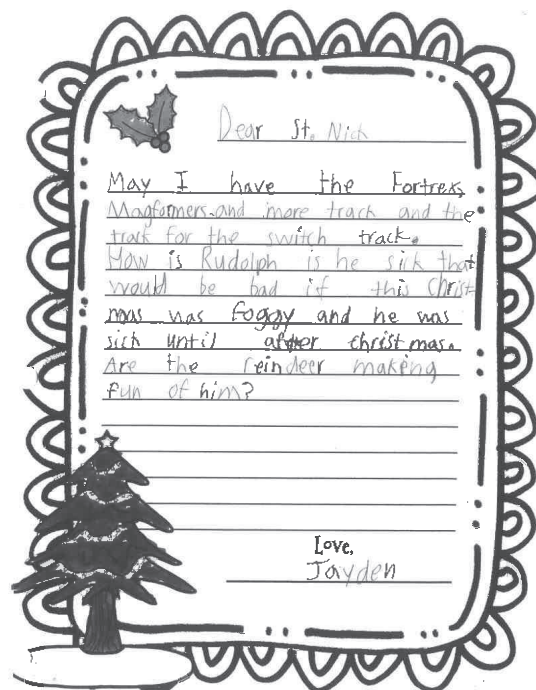 Dear St. Nich
May I have the Fortrex,
Magformers and more track and the
track for the switch track.
How is Rudolph is he sick that
would be bad if this Christ-
mas was foggy and he was
sick until after christmas.
Are the reindeer making
fun of him?
Love,
Jayden